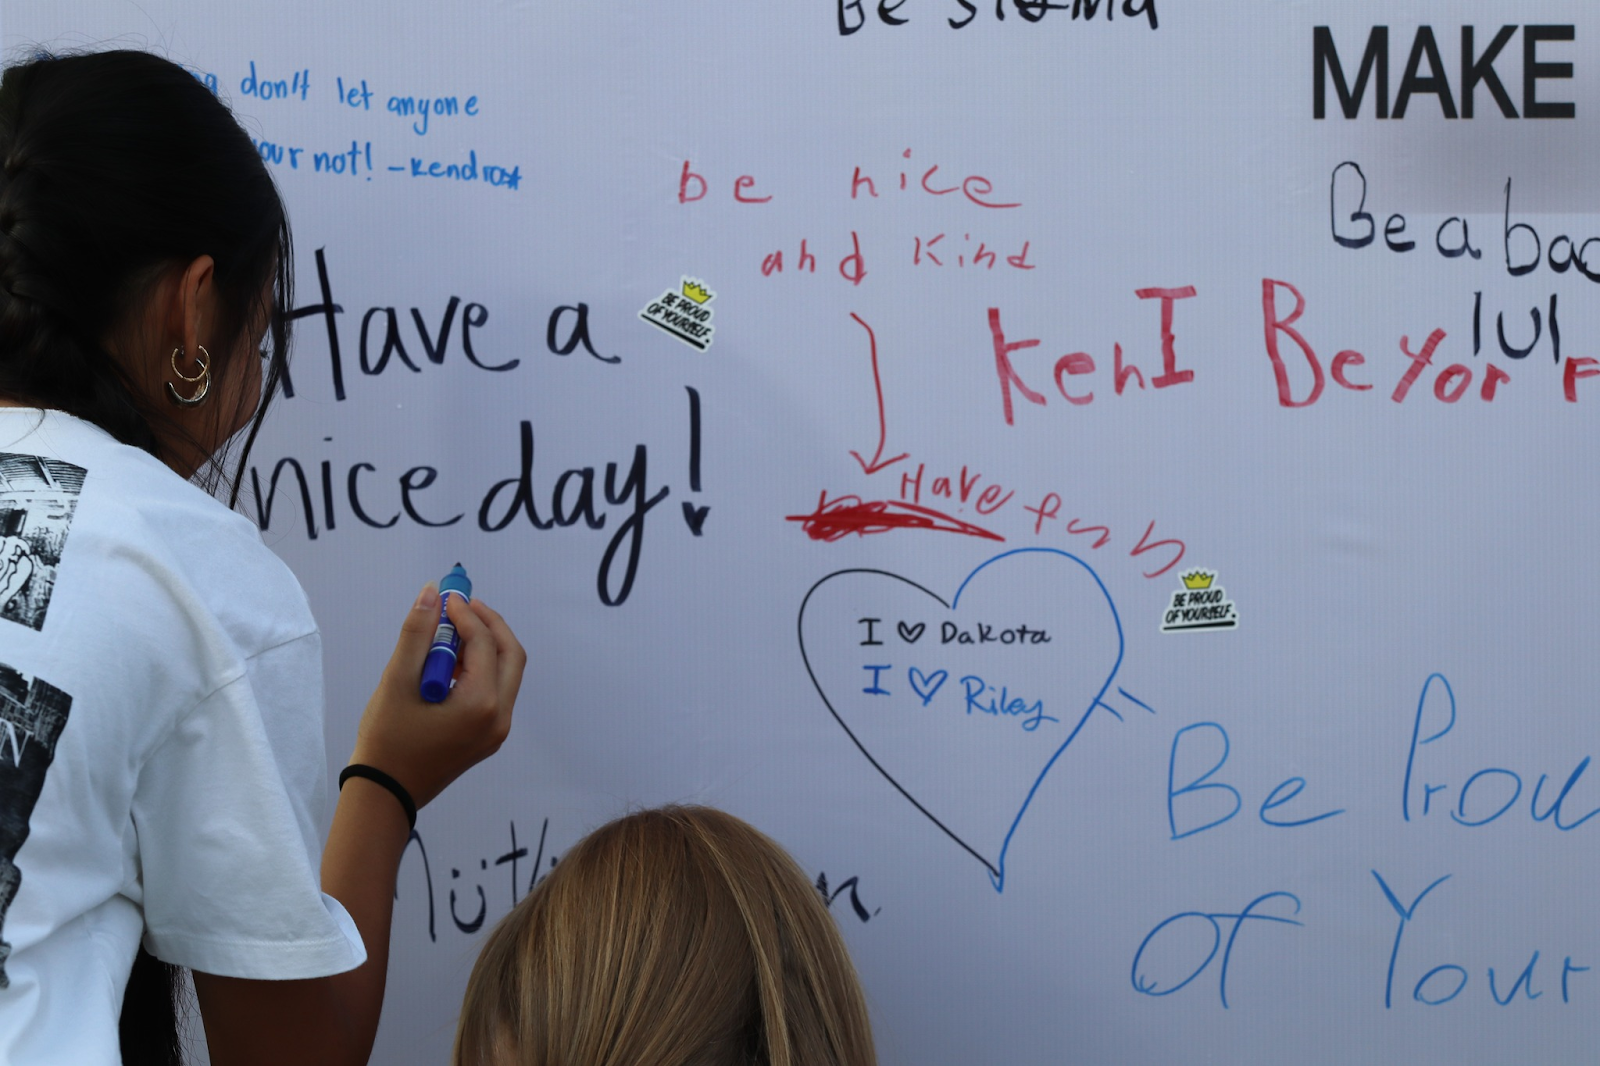 Be sigma
MAKE
don't let anyone
your not! -Kendra
be nice
and kind
Be a bad
lul
Have a
nice day!
BE PROUD
OF YOURSELF.
KenI Be Yor F
Have fun
I ♡ Dakota
I ♡ Riley
BE PROUD
OF YOURSELF.
Be Prou
of Your